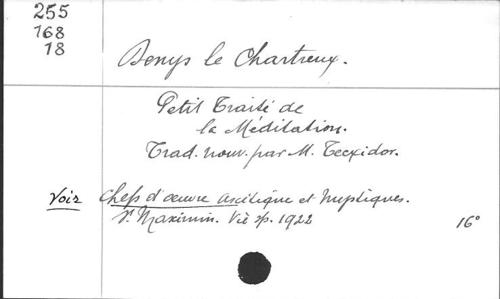 255
168
18
Denys le Chartreux.
Petit Traité de
la Méditation.
Trad. nouv. par M. Teexidor.
Voir Chefs d'œuvre ascétique et mystiques.
St Maximin. Vie sp. 1922
16°